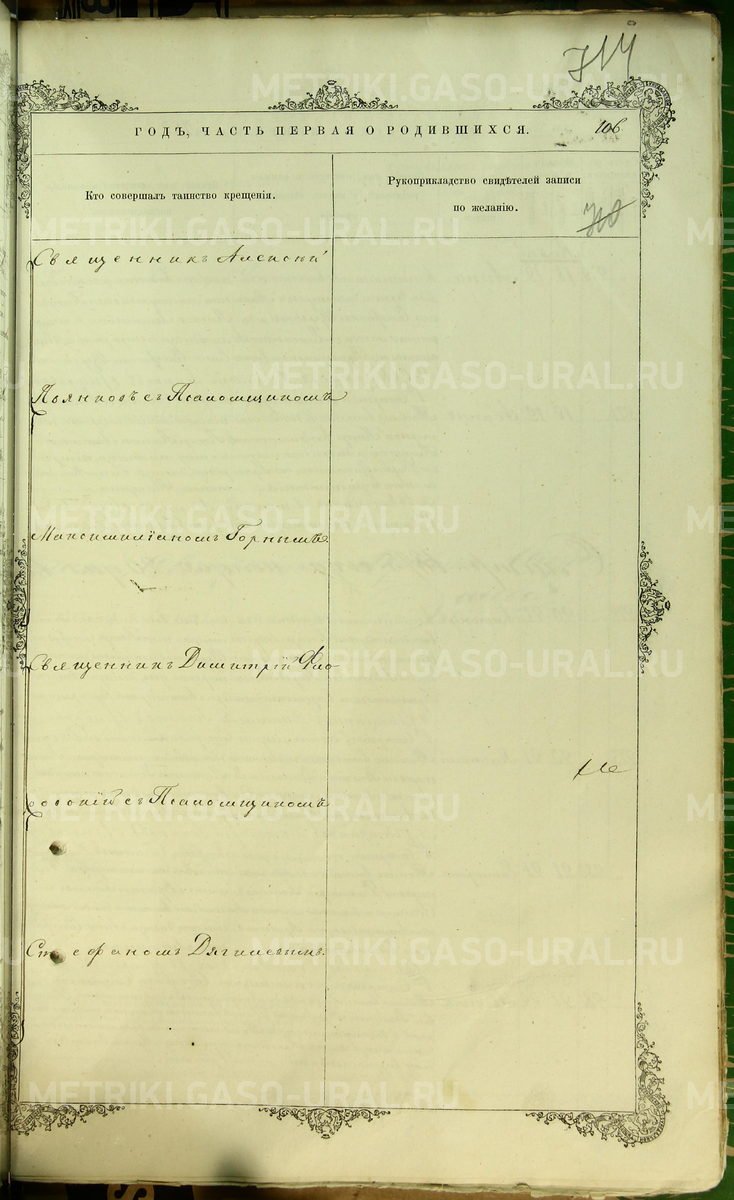 714
ГОДЪ, ЧАСТЬ ПЕРВАЯ О РОДИВШИХСЯ. 106
Кто совершалъ таинство крещенія.
Рукоприкладство свидѣтелей записи
по желанію.
710
Священникъ Алексѣй
Пьянковъ съ Псаломщикомъ
Максимиліаномъ Горнымъ.
Священникъ Димитрій
съ Псаломщикомъ
Стефаномъ Дягилевымъ.
METRIKI.GASO-URAL.RU